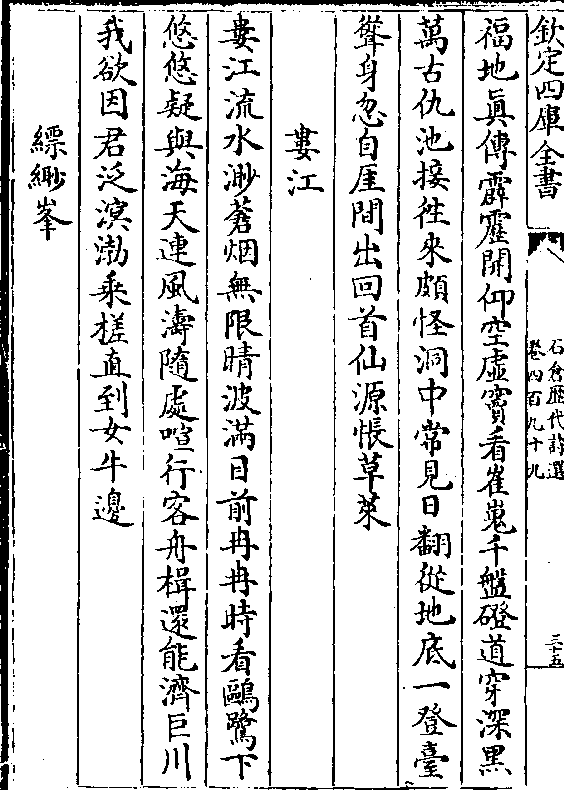 欽定四庫全書
石倉歴代詩選
卷四百九十九
三十五
福地真傳霹靂開仰空虛竇看崔嵬千盤磴道穿深黑
萬古仇池接徃來頗怪洞中常見日翻從地底一登臺
聳身忽自厓間出回首仙源悵草萊
婁江
婁江流水渺蒼烟無限晴波滿目前冉冉時看鷗鷺下
悠悠疑與海天連風濤隨處喧行客舟楫還能濟巨川
我欲因君泛溟渤乘槎直到女牛邊
縹緲峯